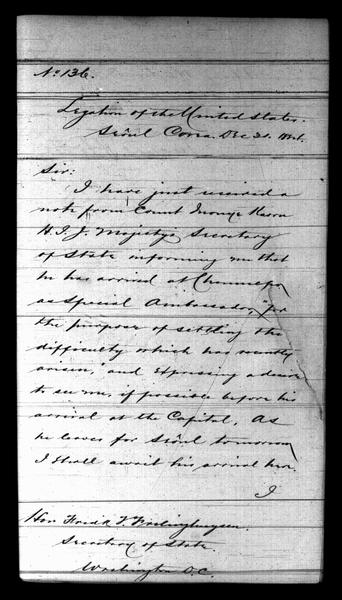 No 136.
Legation of the United States.
Seoul Corea. Dec 31. 1884.
Sir:
I have just received a
note from Count Inouye Kaoru
H. I. J. Majesty's Secretary
of State informing me that
he has arrived at Chemulpo
as Special Ambassador, "for
the purpose of settling the
difficulty which has recently
arisen," and expressing a desire
to see me, if possible before his
arrival at the Capital. As
he leaves for Seoul tomorrow
I shall await his arrival here.
I
Hon Fredk T. Frelinghuysen
Secretary of State.
Washington D.C.